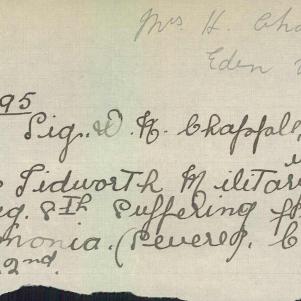 Mrs H. Cha
Eden
95
Sig. W. H. Chappell,
Tidworth Militar
eg. 8th Suffering f
monia. (Severe). C
2nd.